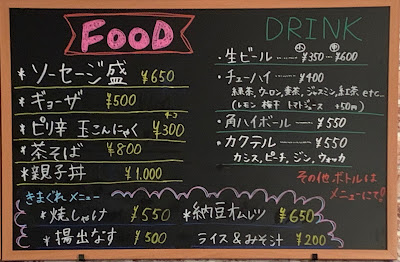 FOOD
*ソーセージ盛 ¥650
*ギョーザ ¥500
*ピリ辛 玉こんにゃく ¥300
*茶そば ¥800
*親子丼 ¥1,000
きまぐれ メニュー
*焼しゃけ ¥550
*納豆オムレツ ¥650
*揚出なす ¥500
ライス&みそ汁 ¥200
DRINK
・生ビール 小 ¥350 中 ¥600
・チューハイ ¥400
緑茶、ウーロン、黄茶、ジャスミン、紅茶 etc…
(レモン 梅干 トマトジュース +50円)
・角ハイボール ¥550
・カクテル ¥550
カシス、ピーチ、ジン、ウォッカ
その他ボトルは
メニューにて!